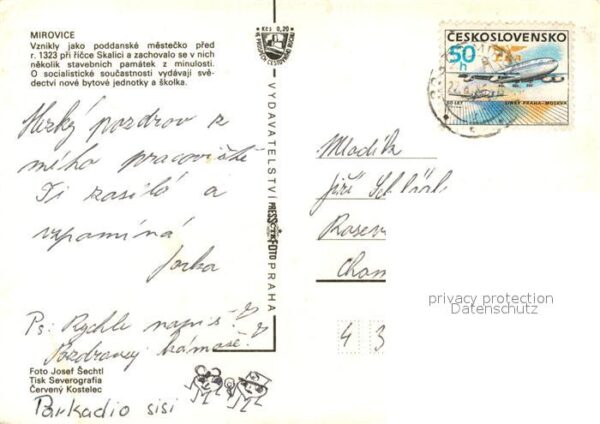 MIROVICE
Vznikly jako poddanské městečko před
r. 1323 při říčce Skalici a zachovalo se v nich
několik stavebních památek z minulosti.
O socialistické současnosti vydávají svě-
dectví nové bytové jednotky a školka.
Kčs 0,20
ČESKOSLOVENSKO
50 h
50 LET LINKY PRAHA-MOSKVA
Hezký pozdrov z
mého pracoviště
Ti zasílá a
vzpomíná
Jarka
Ps: Rychle napiš!
Pozdravuj kámoše!
VYDAVATELSTVÍ PRESSFOTO PRAHA
Mladík
Jiří
privacy protection
Datenschutz
4 3
Foto Josef Šechtl
Tisk Severografia
Červený Kostelec
Parkadio sisi